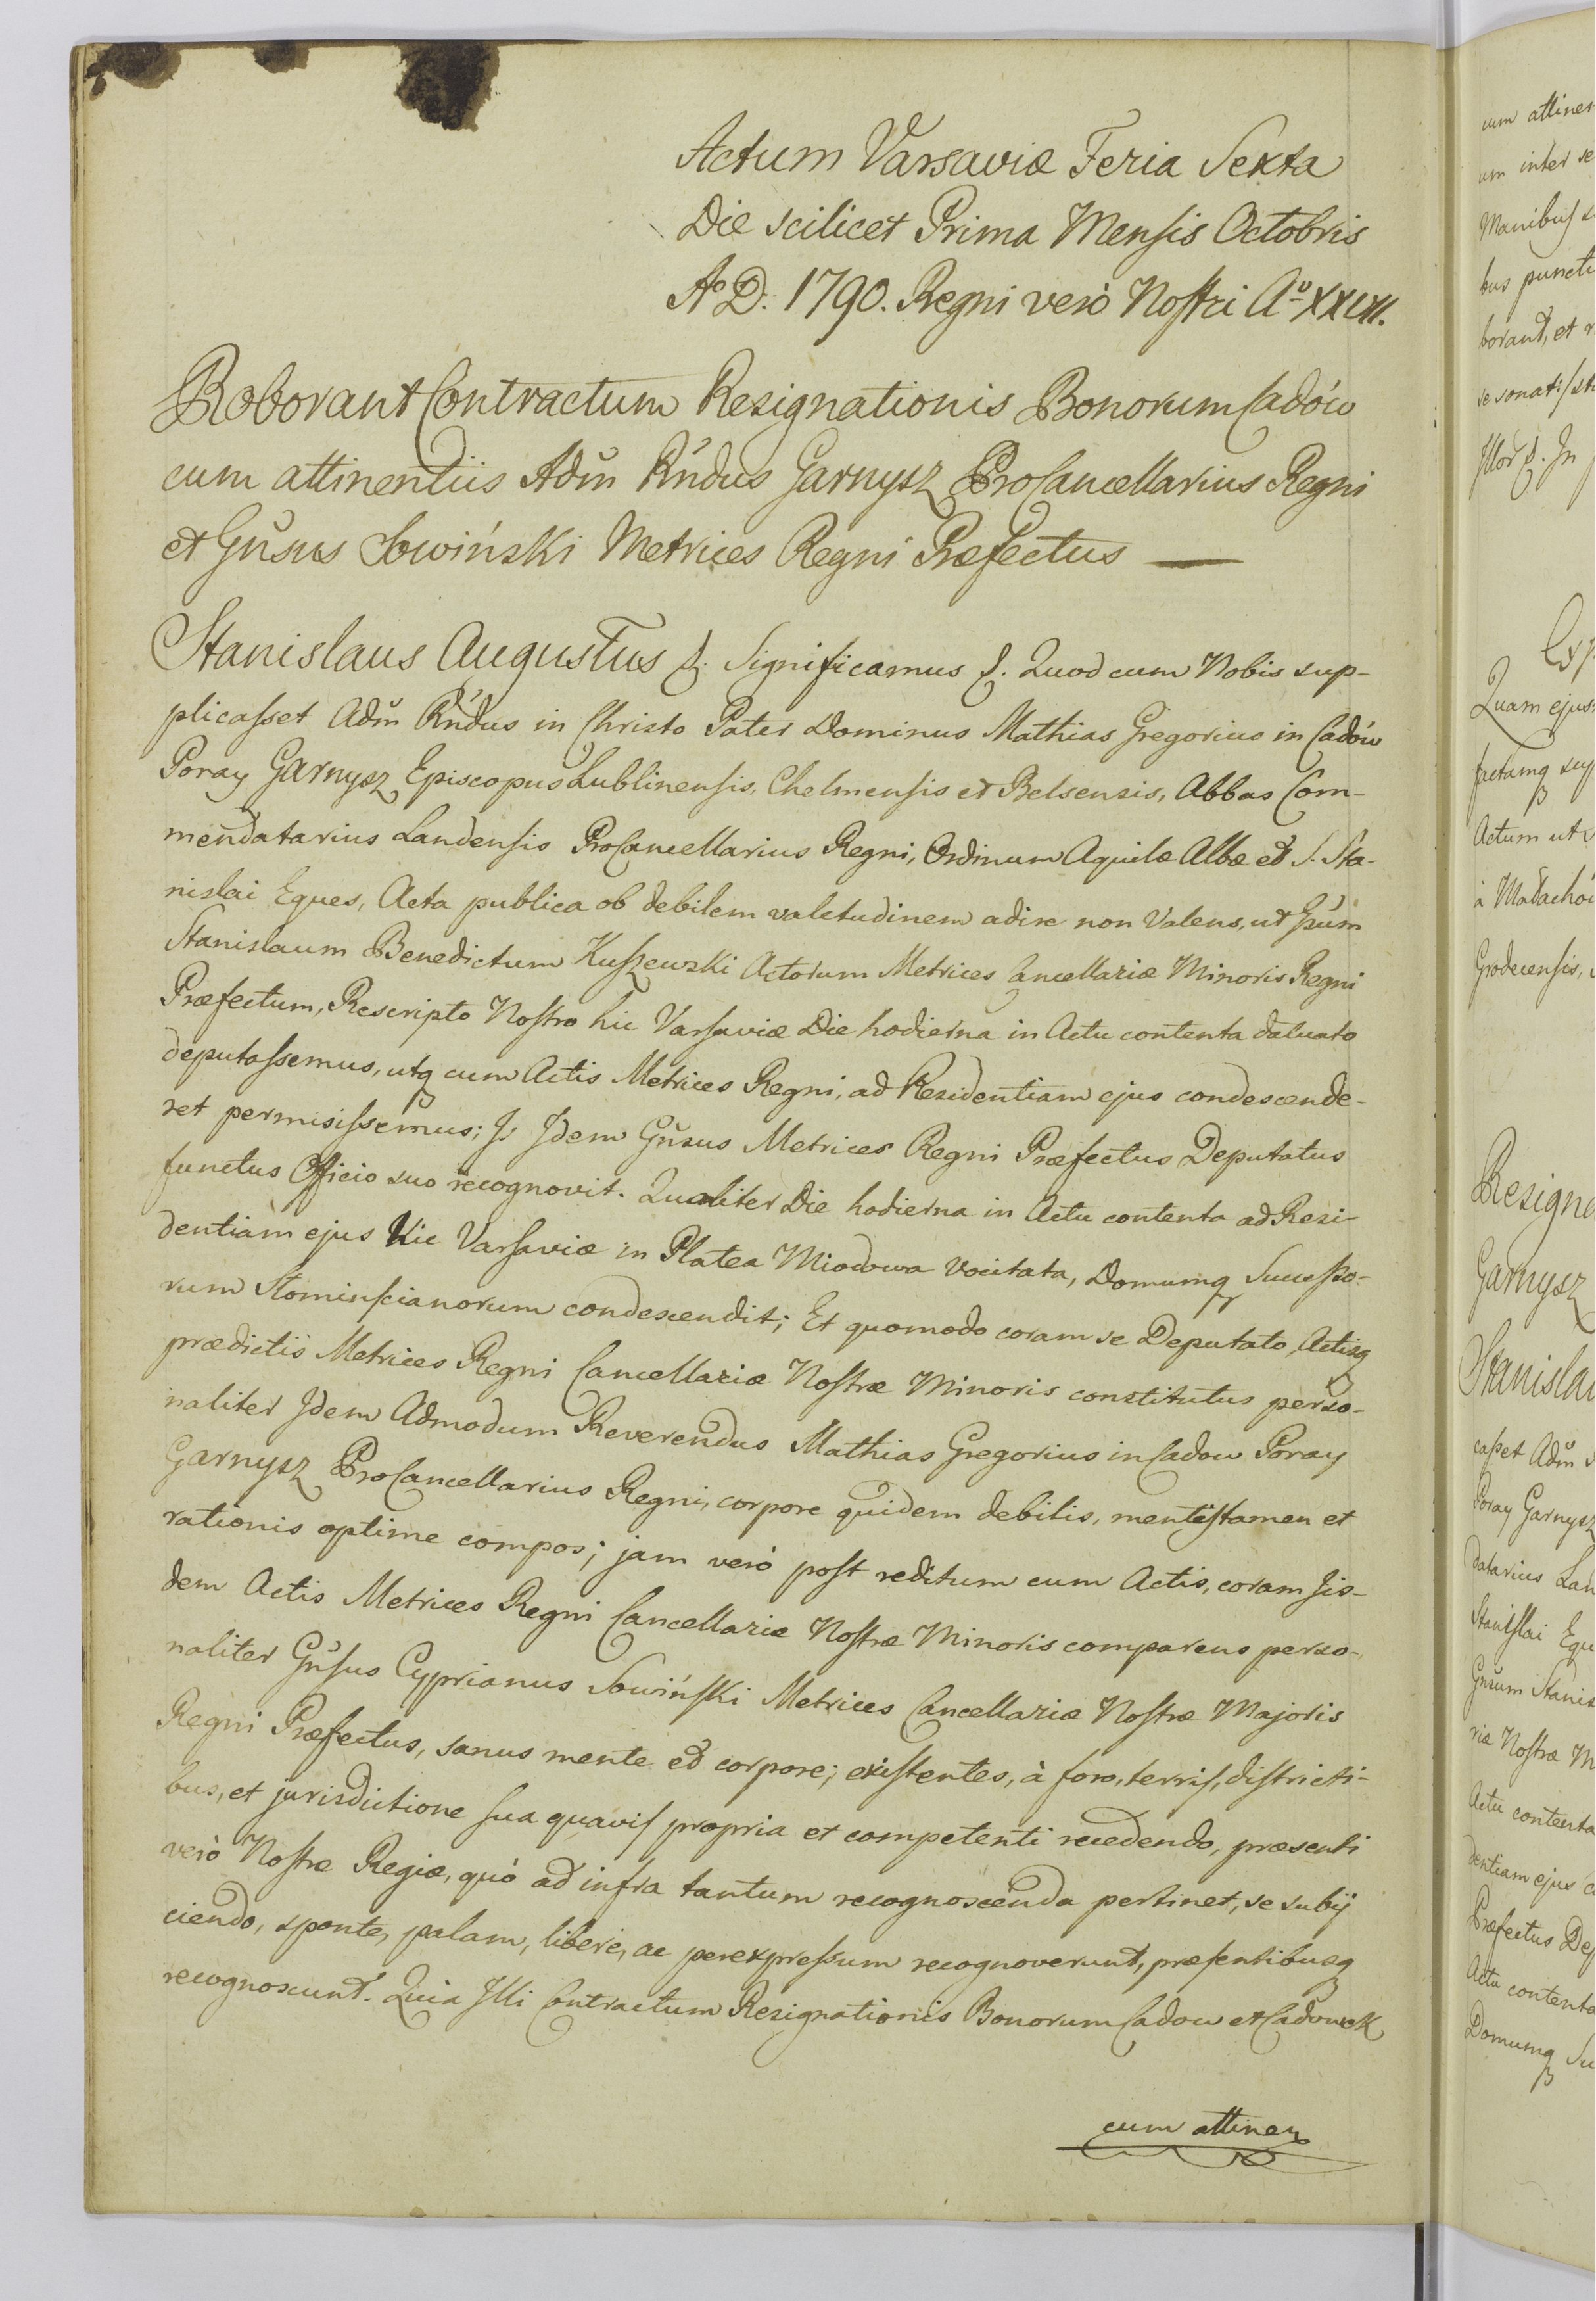 Actum Varsaviæ Feria Sexta
Die scilicet Prima Mensis Octobris
Ao D. 1790. Regni verò Nostri Ao XXVII.
Roborant Contractum Resignationis Bonorum Cadów
cum attinentiis Adm̃ Rñdus Garnysz ProCancellarius Regni
et Gñsus Sowiński Metrices Regni Præfectus —
Stanislaus Augustus &. Significamus &. Quod cum Nobis sup-
plicasset Adm̃ Rñdus in Christo Pater Dominus Mathias Gregorius in Cadów
Poray Garnysz Episcopus Lublinensis, Chelmensis et Belsensis, Abbas Com-
mendatarius Landensis ProCancellarius Regni, Ordinum Aquilæ Albæ et S. Sta-
nislai Eques, Acta publica ob debilem valetudinem adire non Valens, ut Gsũm
Stanislaum Benedictum Kuszewski Actorum Metrices Cancellariæ Minoris Regni
Præfectum, Rescripto Nostro hic Varsaviæ Die hodierna in Actu contenta datuato
deputassemus, utq cum Actis Metrices Regni, ad Residentiam ejus condescende-
ret permisissemus; Is Idem Gñsus Metrices Regni Præfectus Deputatus
functus Officio suo recognovit. Qualiter Die hodierna in Actu contenta ad Resi-
dentiam ejus hic Varsaviæ in Platea Miodowa vocitata, Domumq Successo-
rum Slominscianorum condescendit; Et quomodo coram se Deputato, Actisq
prædictis Metrices Regni Cancellariæ Nostræ Minoris constitutus perso-
naliter Idem Admodum Reverendus Mathias Gregorius in Cadow Poray
Garnysz ProCancellarius Regni, corpore quidem debilis, mentis tamen et
rationis optime compos; jam verò post reditum cum Actis, coram Iis-
dem Actis Metrices Regni Cancellariæ Nostræ Minoris comparens perso-
naliter Gñsus Cyprianus Sowiński Metrices Cancellariæ Nostræ Majoris
Regni Præfectus, sanus mente et corpore; existentes, à foro, terris, districti-
bus, et jurisdictione sua quavis propria et competenti recedendo, præsenti
verò Nostræ Regiæ, quò ad infra tantum recognoscenda pertinet, se subij
ciendo, sponte, palam, libere, ac per expressum recognoverunt, præsentibusq
recognoscunt. Quia Illi Contractum Resignationis Bonorum Cadow et Cadowek
cum attinen
cum attinen
um inter se
Manibus
bus puncti
borant, et
Quam ejus
Actum ut
Grodecensis,
Resigna
Garnysz
Stanislau
casset Adm̃
Poray Garnysz
datarius Lan
Stanislai Equ
Gñsum Stanis
riæ Nostræ M
Actu contenta
dentiam ejus
Præfectus Dep
Actu contenta
Domumq Su